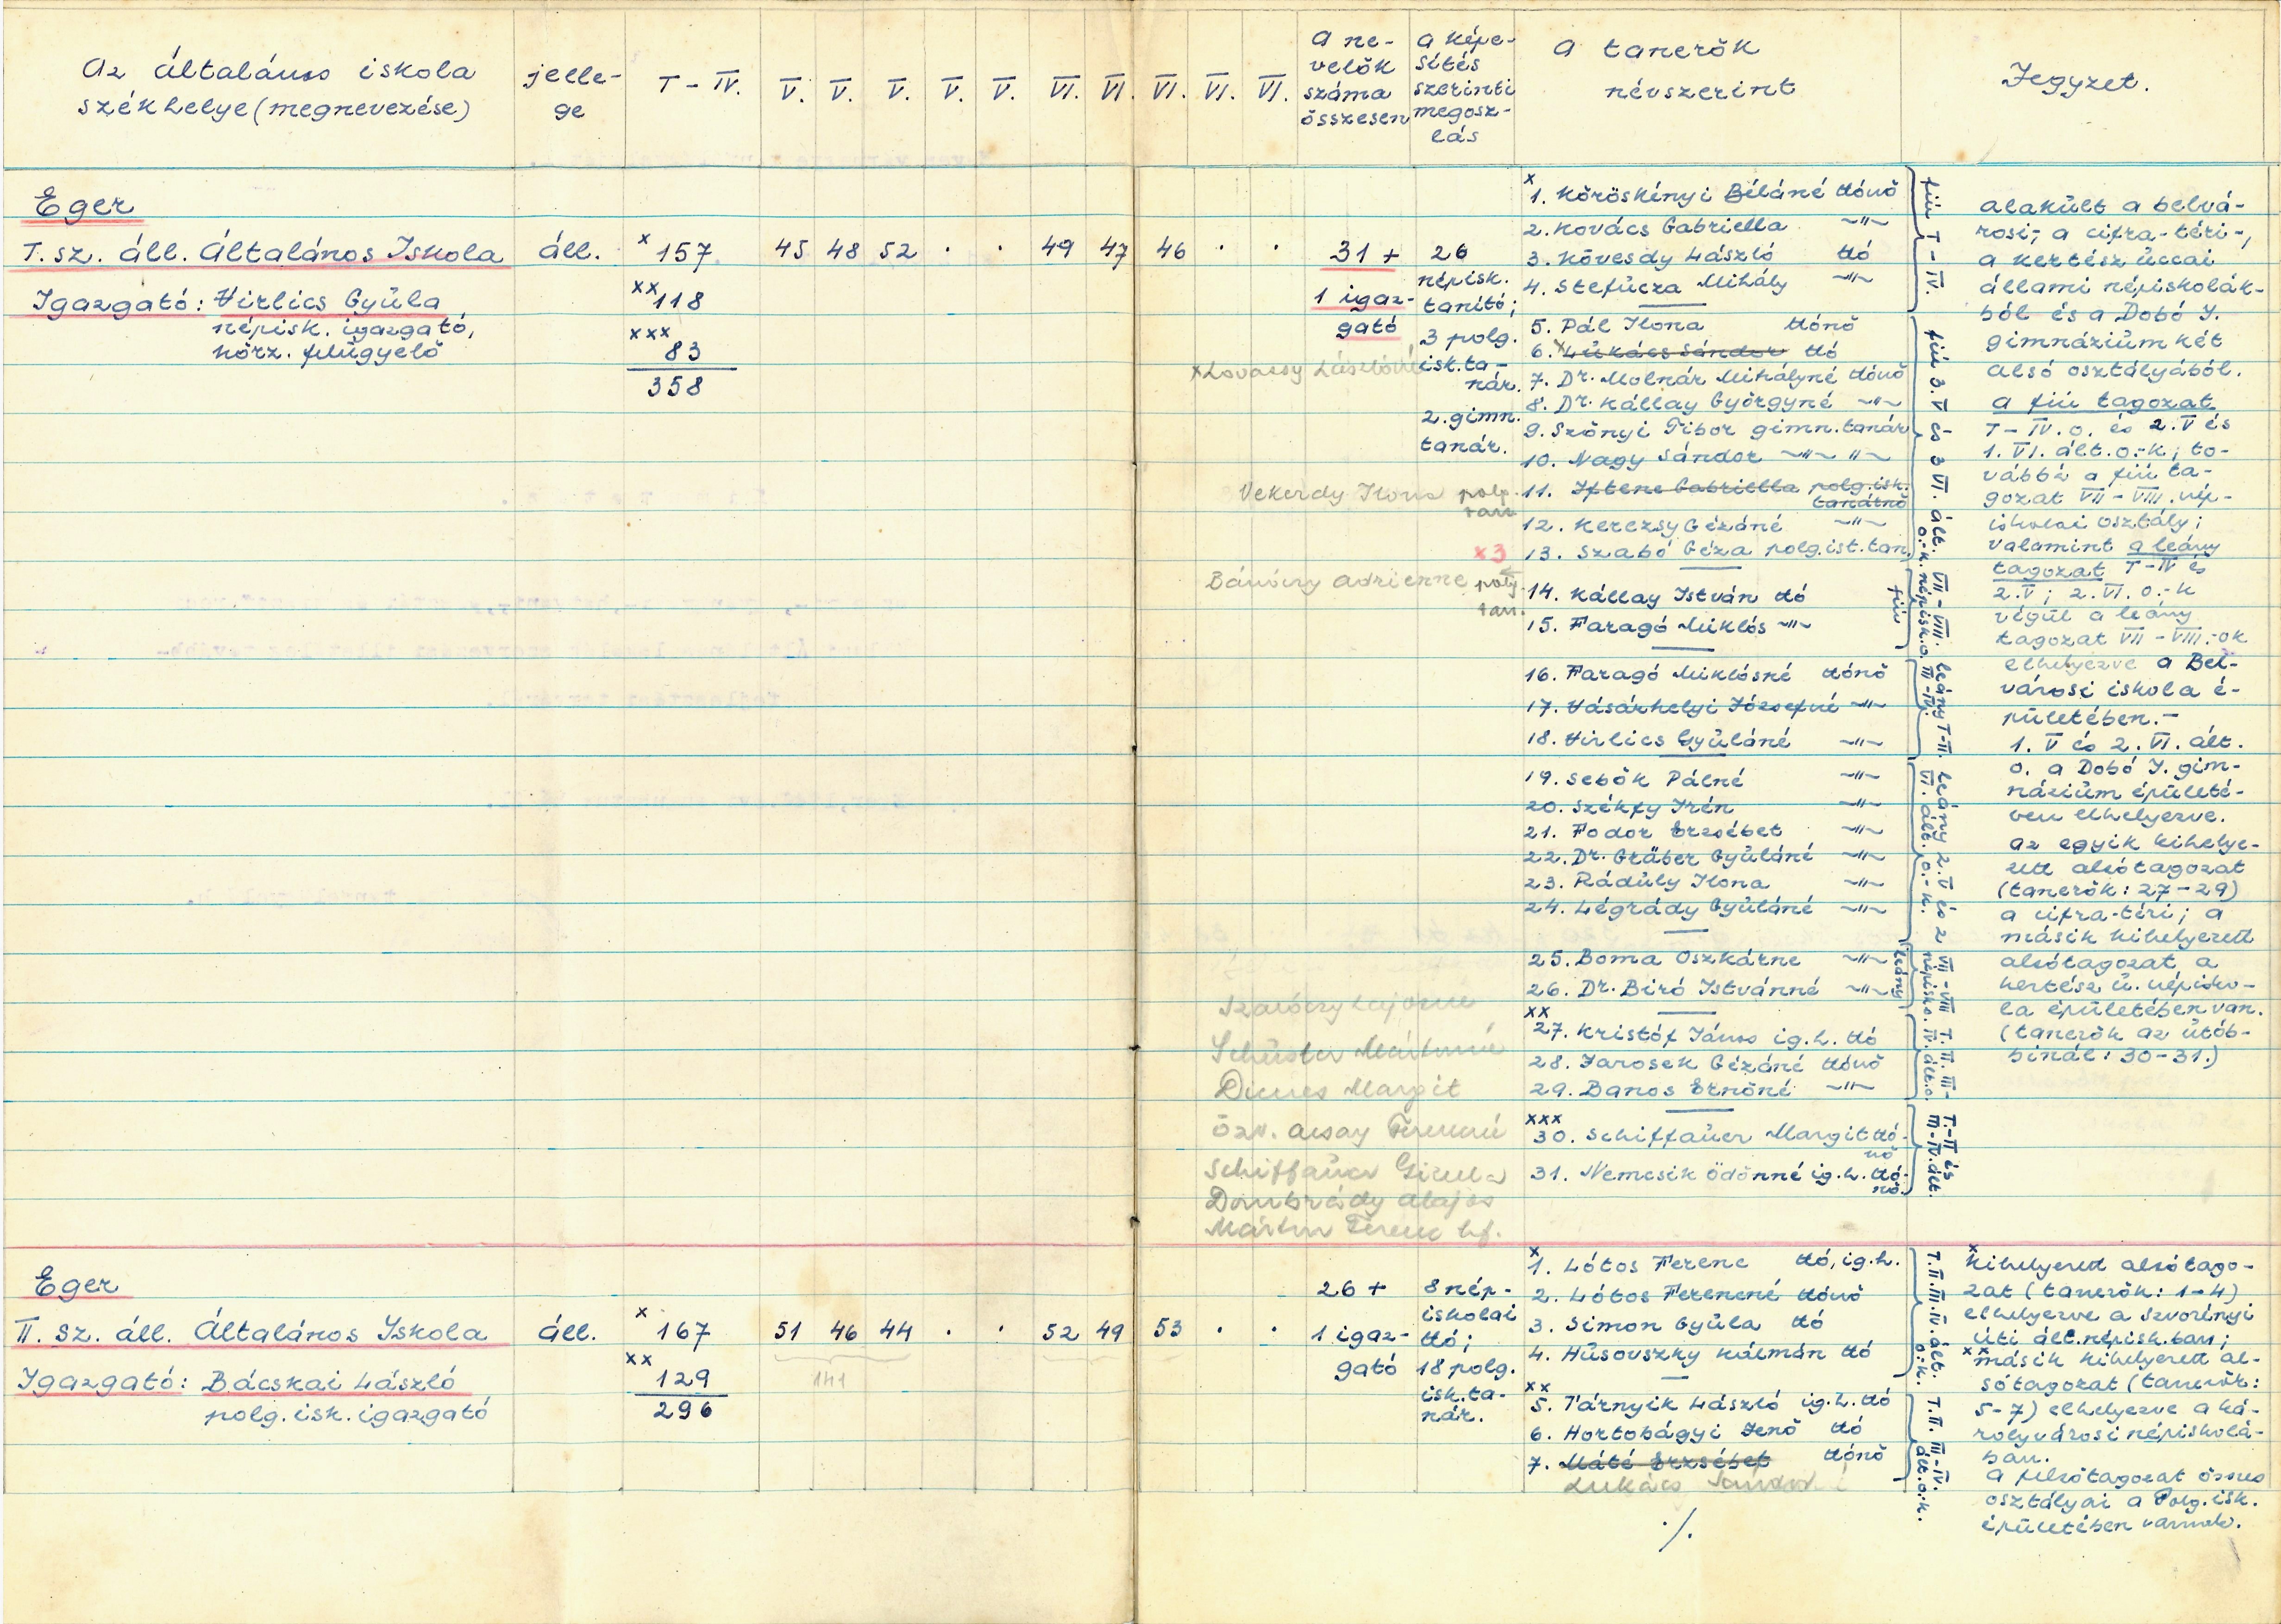 Az Általános iskola
székhelye (megnevezése)
jelle-
ge
I - IV.
V. V. V. V. V. VI. VI. VI. VI. VI.
A ne-
velők
száma
összesen
A képe-
sítés
szerinti
megosz-
lás
A tanerők
névszerint
Jegyzet.
Eger
I. sz. áll. Általános Iskola
Igazgató: Virlics Gyula
népisk. igazgató,
körz. felügyelő
áll.
x 157
xx 118
xxx 83
358
45 48 52 . . 49 47 46 . .
31 +
1 igaz-
gató
26
népisk.
tanító;
3 polg.
isk.ta-
nár.
2. gimn.
tanár.
x 1. Köröskényi Béláné tónő
2. Kovács Gabriella -"-
3. Kövesdy László tó
4. Stefucza Mihály -"-
5. Pál Ilona tónő
6. x Lukács Sándor tó
7. Dr. Molnár Mihályné tónő
8. Dr. Kállay Györgyné -"-
9. Szőnyi Tibor gimn.tanár
10. Nagy Sándor -"- "-
11. Iftene Gabriella polg.isk.
tanárnő
12. Kerezsy Gézáné -"-
13. Szabó Géza polg.ist.tan.
14. Kállay István tó
15. Faragó Miklós -"-
16. Faragó Miklósné tónő
17. Vásárhelyi Józsefné -"-
18. Virlics Gyuláné -"-
19. Sebők Pálné -"-
20. Székfy Irén -"-
21. Fodor Erzsébet -"-
22. Dr. Gräber Gyuláné -"-
23. Ráduly Ilona -"-
24. Légrády Gyuláné -"-
25. Boma Oszkárne -"-
26. Dr. Biró Istvánné -"-
xx
27. Kristóf János ig.h. tó
28. Jarosek Gézáné tónő
29. Banos Ernőné -"-
xxx
30. Schiffauer Margit tó-
nő
31. Nemcsik Ödönné ig.h. tó-
nő.
x Lovassy Lászlóné
Vekerdy Ilona polg.
tan
x3
Bánóczy Adrienne polg.
tan.
Schuster Mártonné
Dienes Margit
Özv. Acsay Ferencné
Schiffauer Gizella
Dombrády Alajos
Márton Ferenc hf.
fiú I - IV.
fiú 3. V és 3 VI. ált.
o.-k.
VII - VIII.
népisk.o.
fiú
leány I-II.
III-IV.
leány 2. V és 2
VI. ált. o.-k.
VII - VIII
népisk.o.
leány
I. II. III-
IV. ált.o.
I.-II és
III-IV.ált.
alakult a belvá-
rosi-, a cifra-téri-,
a kertész uccai
állami népiskolák-
ból és a Dobó I.
gimnázium két
alsó osztályából.
A fiú tagozat
I - IV. o. és 2. V és
1. VI. ált. o.-k; to-
vábbá a fiú ta-
gozat VII - VIII. nép-
iskolai osztály;
valamint a leány
tagozat I - IV és
2. V; 2. VI. o.-k
végül a leány
tagozat VII - VIII.-ok
elhelyezve a Bel-
városi iskola é-
pületében.-
1. V és 2. VI. ált.
o. a Dobó I. gim-
názium épületé-
ben elhelyezve.
Az egyik kihelye-
zett alsótagozat
(tanerők: 27-29)
a cifra-téri; a
másik kihelyezett
alsótagozat a
kertész u. népisko-
la épületében van.
(tanerők az utób-
binál: 30-31.)
Eger
II. sz. áll. Általános Iskola
Igazgató: Bácskai László
polg. isk. igazgató
áll.
x 167
xx 129
296
51 46 44 . . 52 49 53 . .
141
26 +
1 igaz-
gató
8 nép-
iskolai
tó;
18 polg.
isk.ta-
nár.
x
1. Lótos Ferenc tó, ig.h.
2. Lótos Ferencné tónő
3. Simon Gyula tó
4. Husovszky Kálmán tó
xx
5. Tárnyik László ig.h. tó
6. Hortobágyi Jenő tó
7. Máté Erzsébet tónő
Lukács Sándor
I. II. III. IV. ált.
o.-k.
I. II. III-IV.
ált.o.-k.
x kihelyezett alsótago-
zat (tanerők: 1-4)
elhelyezve a Szvorényi
úti ált.népisk.ban;
xx másik kihelyezett al-
sótagozat (tanerők:
5-7) elhelyezve a ká-
rolyvárosi népiskolá-
ban.
A felsőtagozat összes
osztályai a Polg. isk.
épületében vannak.
./.